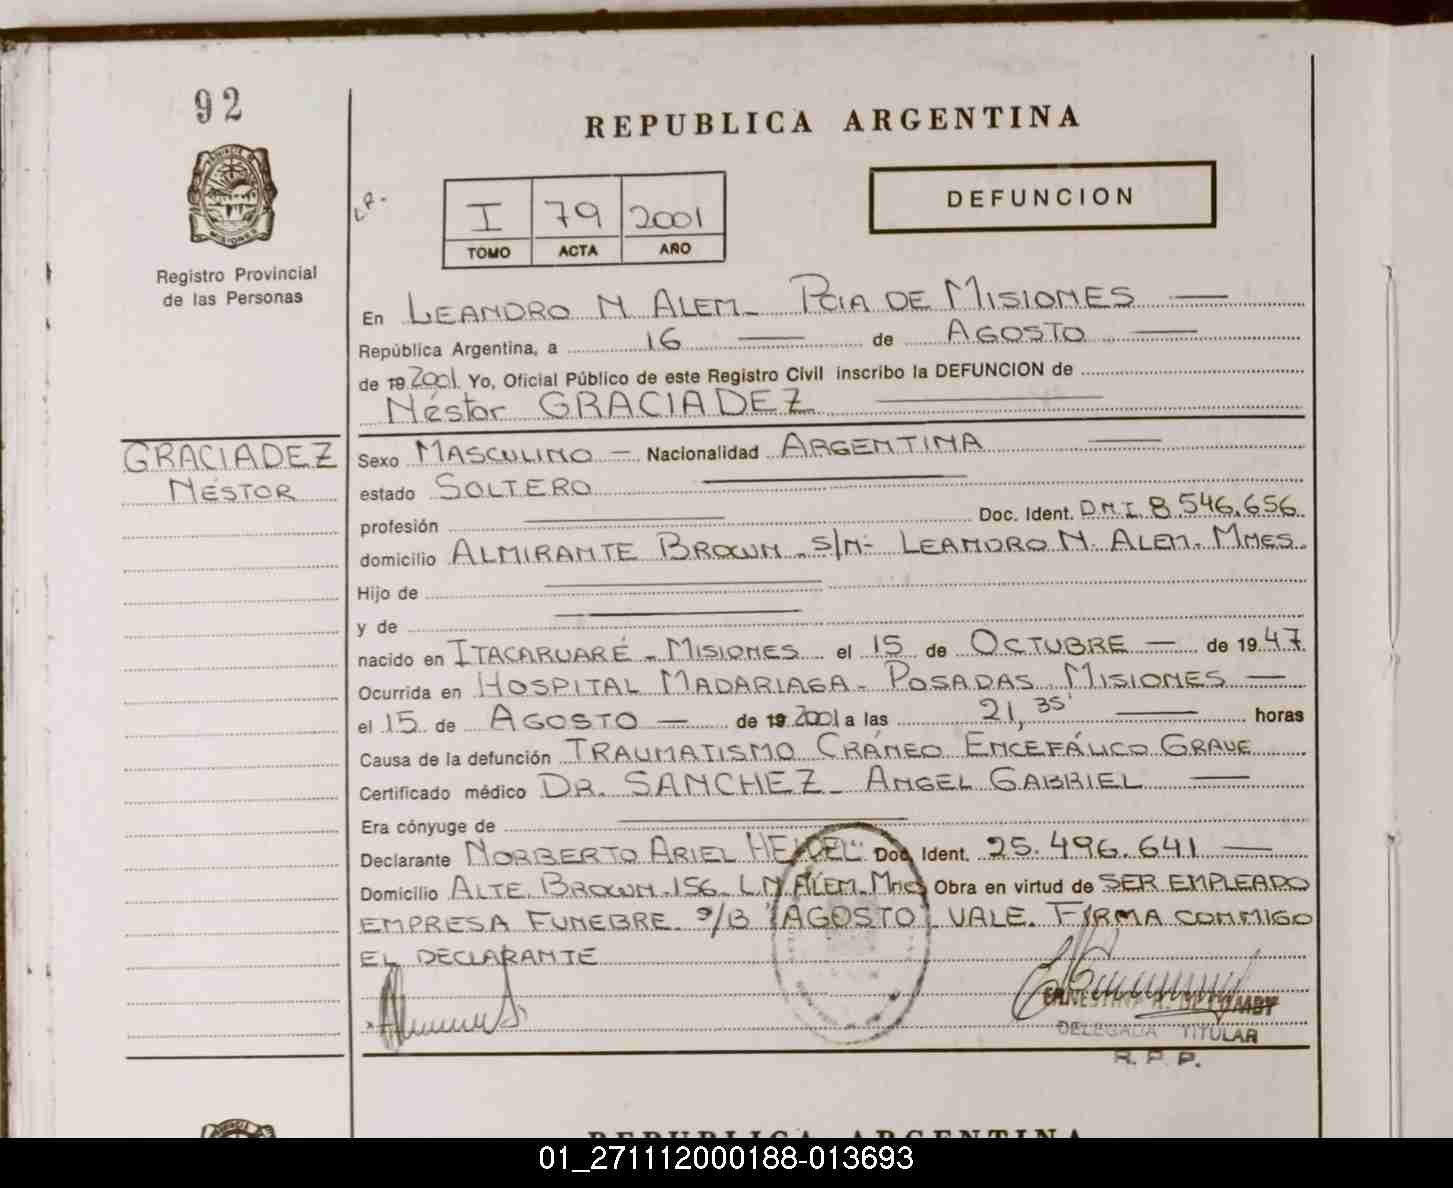 92
REPUBLICA ARGENTINA
DEFUNCION
I 79 2001
TOMO ACTA AÑO
PROVINCIA DE
MISIONES
Registro Provincial
de las Personas
En LEANDRO N. ALEM_ PCIA DE MISIONES
República Argentina, a 16 de AGOSTO
de 19 2001. Yo, Oficial Público de este Registro Civil inscribo la DEFUNCION de
Néstor GRACIADEZ
GRACIADEZ
NÉSTOR
Sexo MASCULINO — Nacionalidad ARGENTINA
estado SOLTERO
profesión Doc. Ident. D.N.I. 8.546.656
domicilio ALMIRANTE BROWN. S/N- LEANDRO N. ALEM. MNES.
Hijo de
y de
nacido en ITACARUARÉ - MISIONES el 15 de OCTUBRE — de 1947
Ocurrida en HOSPITAL MADARIAGA - POSADAS. MISIONES —
el 15 de AGOSTO — de 19 2001 a las 21,35' horas
Causa de la defunción TRAUMATISMO CRÁNEO ENCEFÁLICO GRAVE
Certificado médico DR. SANCHEZ - ANGEL GABRIEL
Era cónyuge de
Declarante NORBERTO ARIEL Doc. Ident. 25.496.641 —
Domicilio ALTE. BROWN. 156. L.N. ALEM. Mnes Obra en virtud de SER EMPLEADO
EMPRESA FUNEBRE. S/B "AGOSTO". VALE. FIRMA CONMIGO
EL DECLARANTE
DELEGADA TITULAR
R. P. P.
REPUBLICA ARGENTINA
01_271112000188-013693